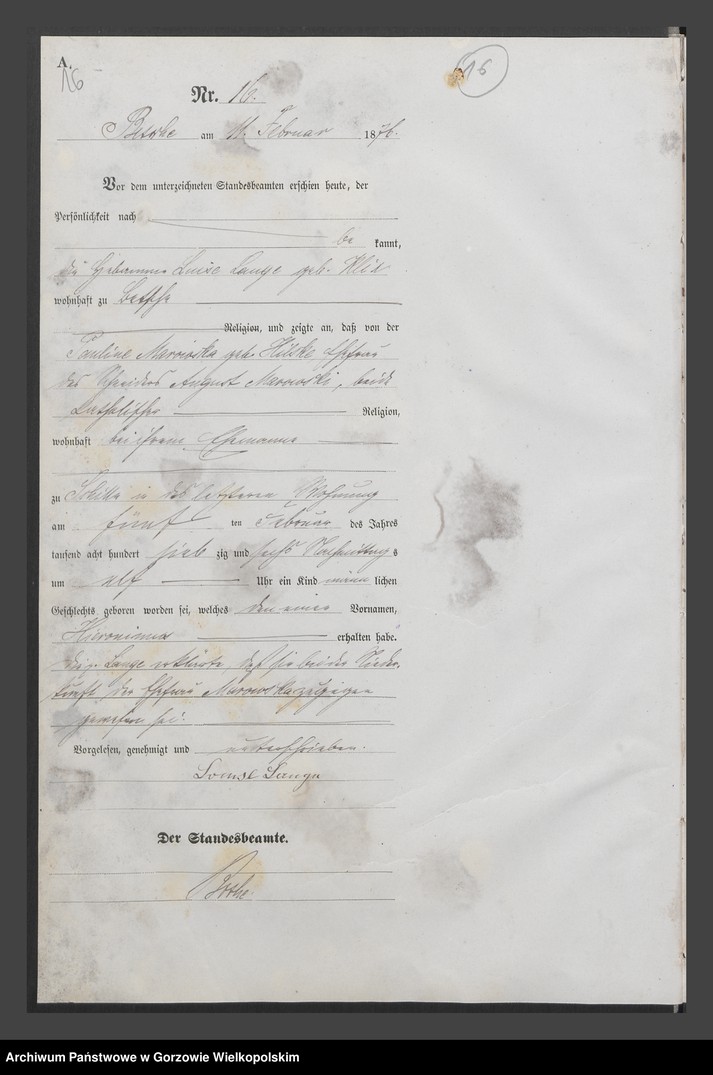 A.
16
16
Nr. 16.
Betsche am 11. Februar 1876.
Vor dem unterzeichneten Standesbeamten erschien heute, der
Persönlichkeit nach
be kannt,
die Hebamme Luise Lange geb.
wohnhaft zu Betsche
Religion, und zeigte an, daß von der
Pauline geb. Ehefrau
des August beide
katholischer Religion,
wohnhaft bei ihrem Ehemanne
zu in des letzteren Wohnung
am fünf ten Februar des Jahres
tausend acht hundert sieb zig und sechs Nachmittags
um elf Uhr ein Kind männ lichen
Geschlechts geboren worden sei, welches den einen Vornamen,
Hieronimus erhalten habe.
Die p. Lange erklärte, daß sie bei der Nieder-
kunft der Ehefrau zugegen
gewesen sei.
Vorgelesen, genehmigt und unterschrieben.
Louise Lange
Der Standesbeamte.
Archiwum Państwowe w Gorzowie Wielkopolskim